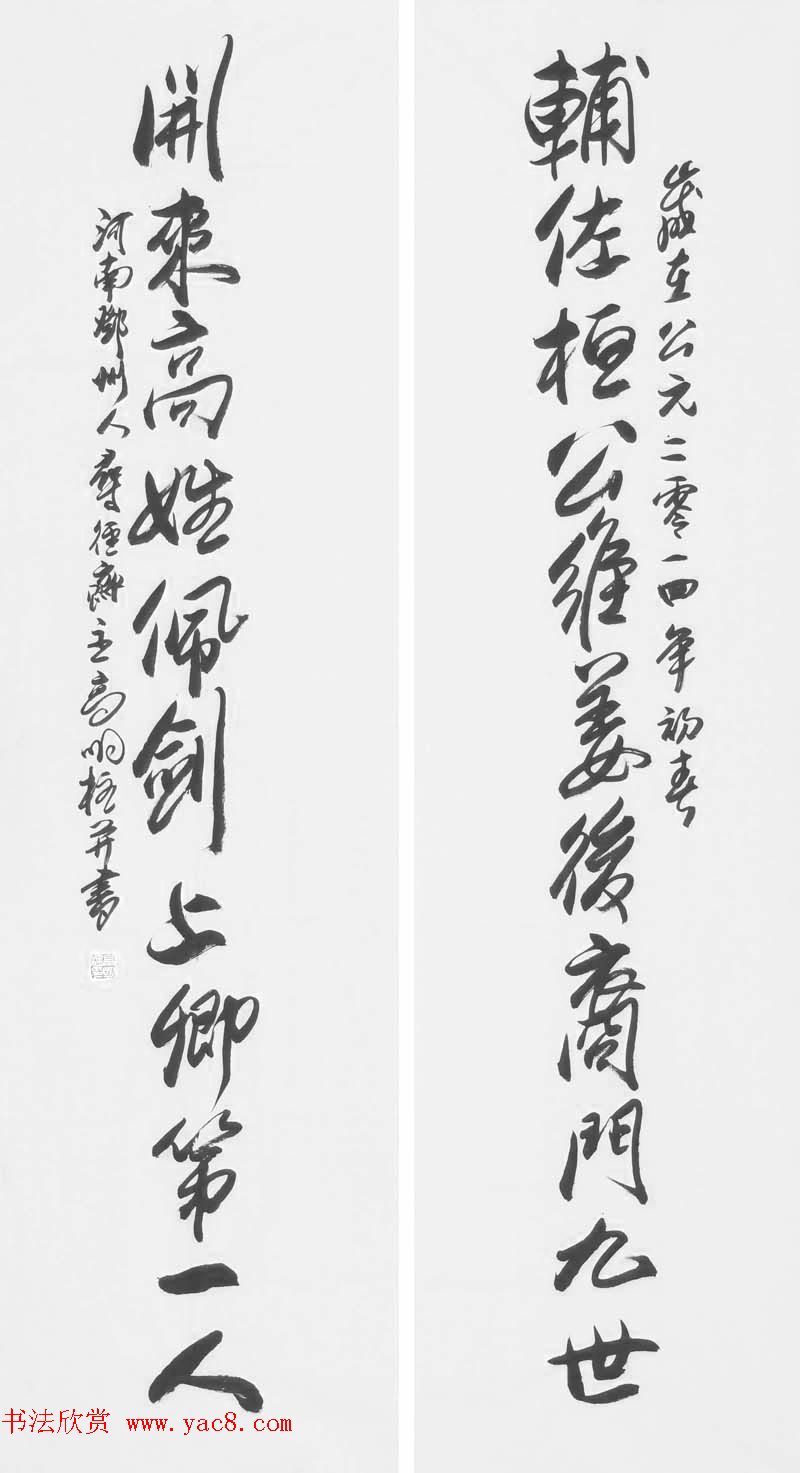 歲在公元二零一四年初春
輔佐桓公維姜後裔門九世
開來高姓佩劍上卿第一人
河南鄧州人尋徑齋主高明柱并書
书法欣赏 www.yac8.com